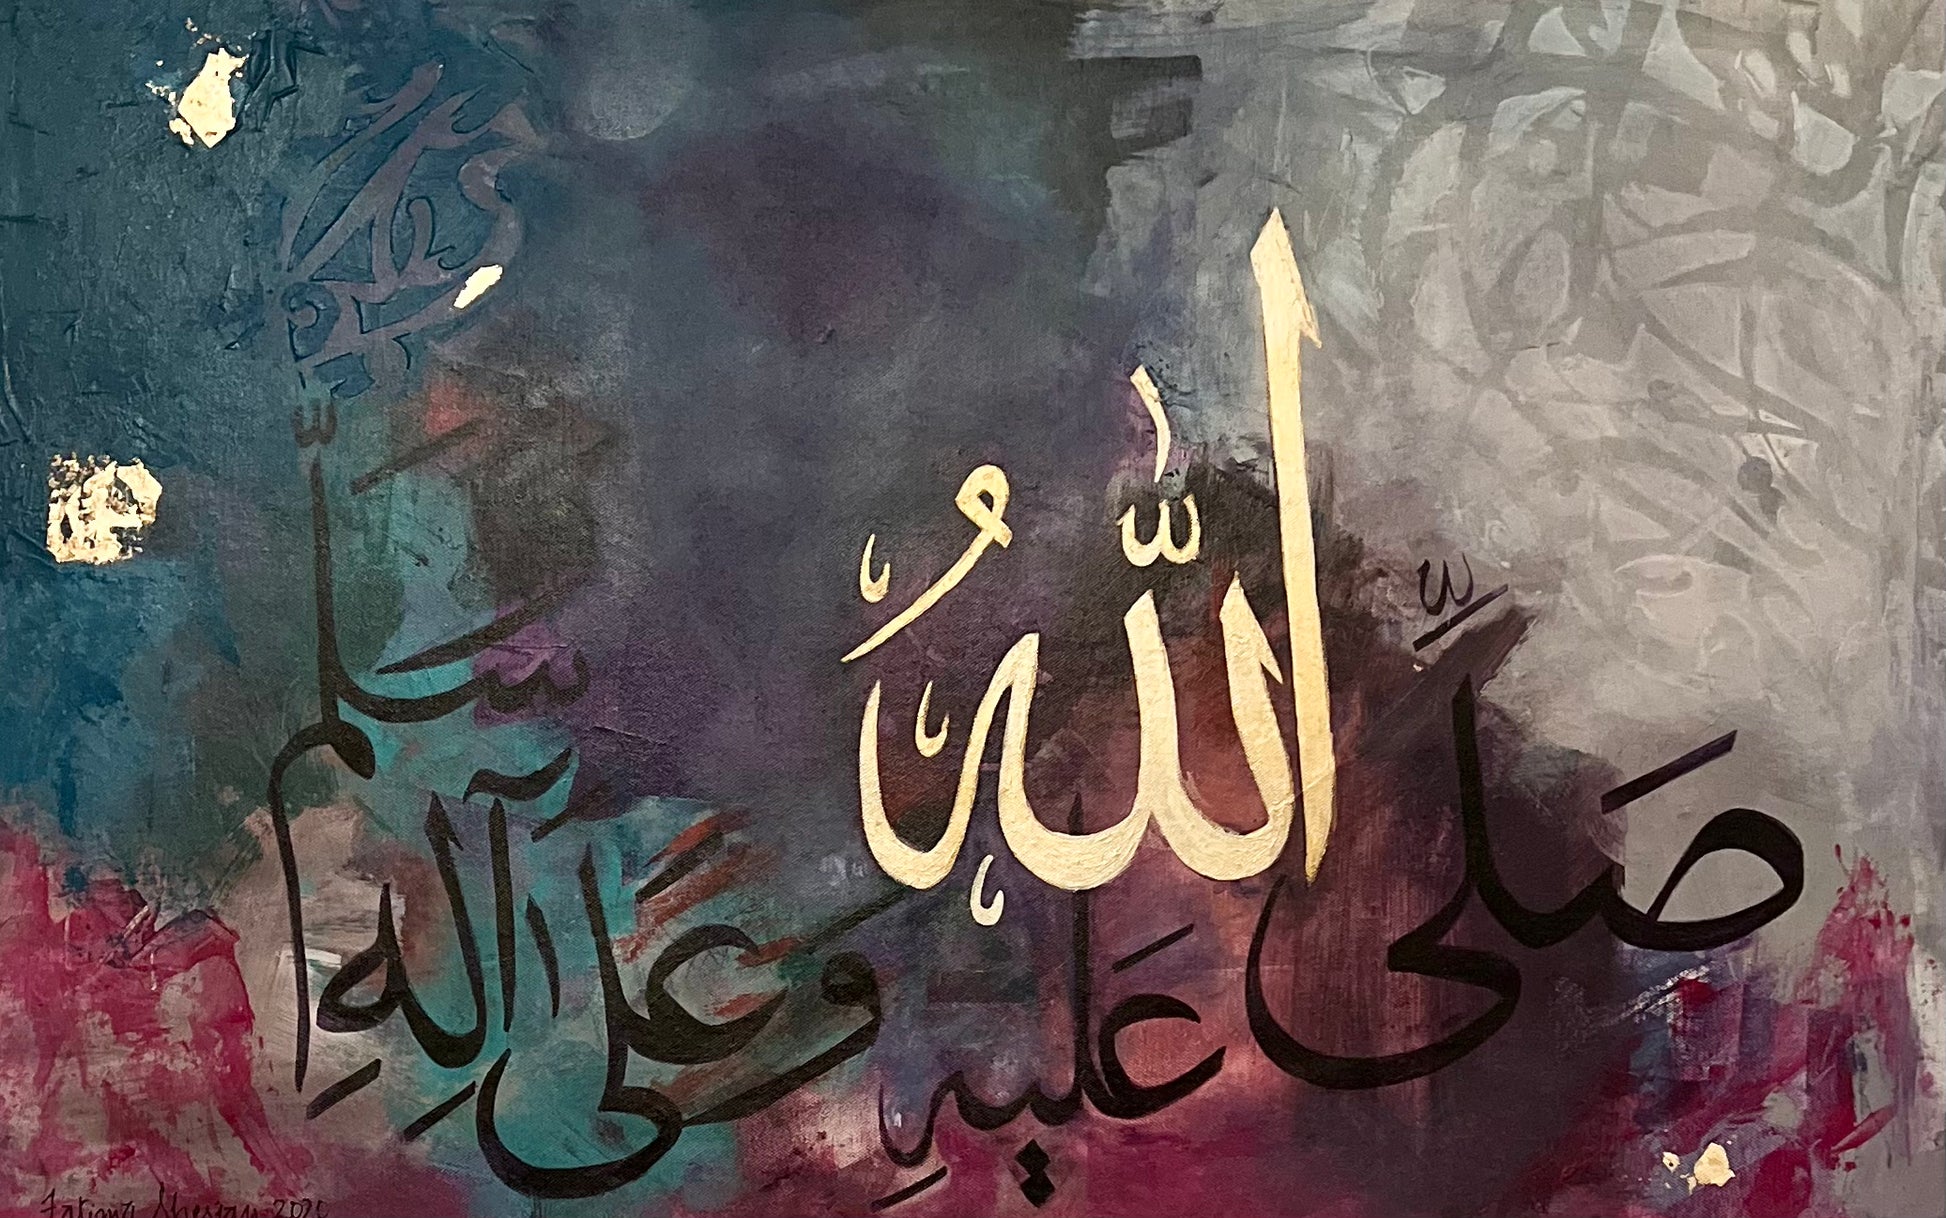 صَلِّى اللّٰهُ عَلَيهِ وَعَلَى آلِهِ سَلَّم
Fatima 2020